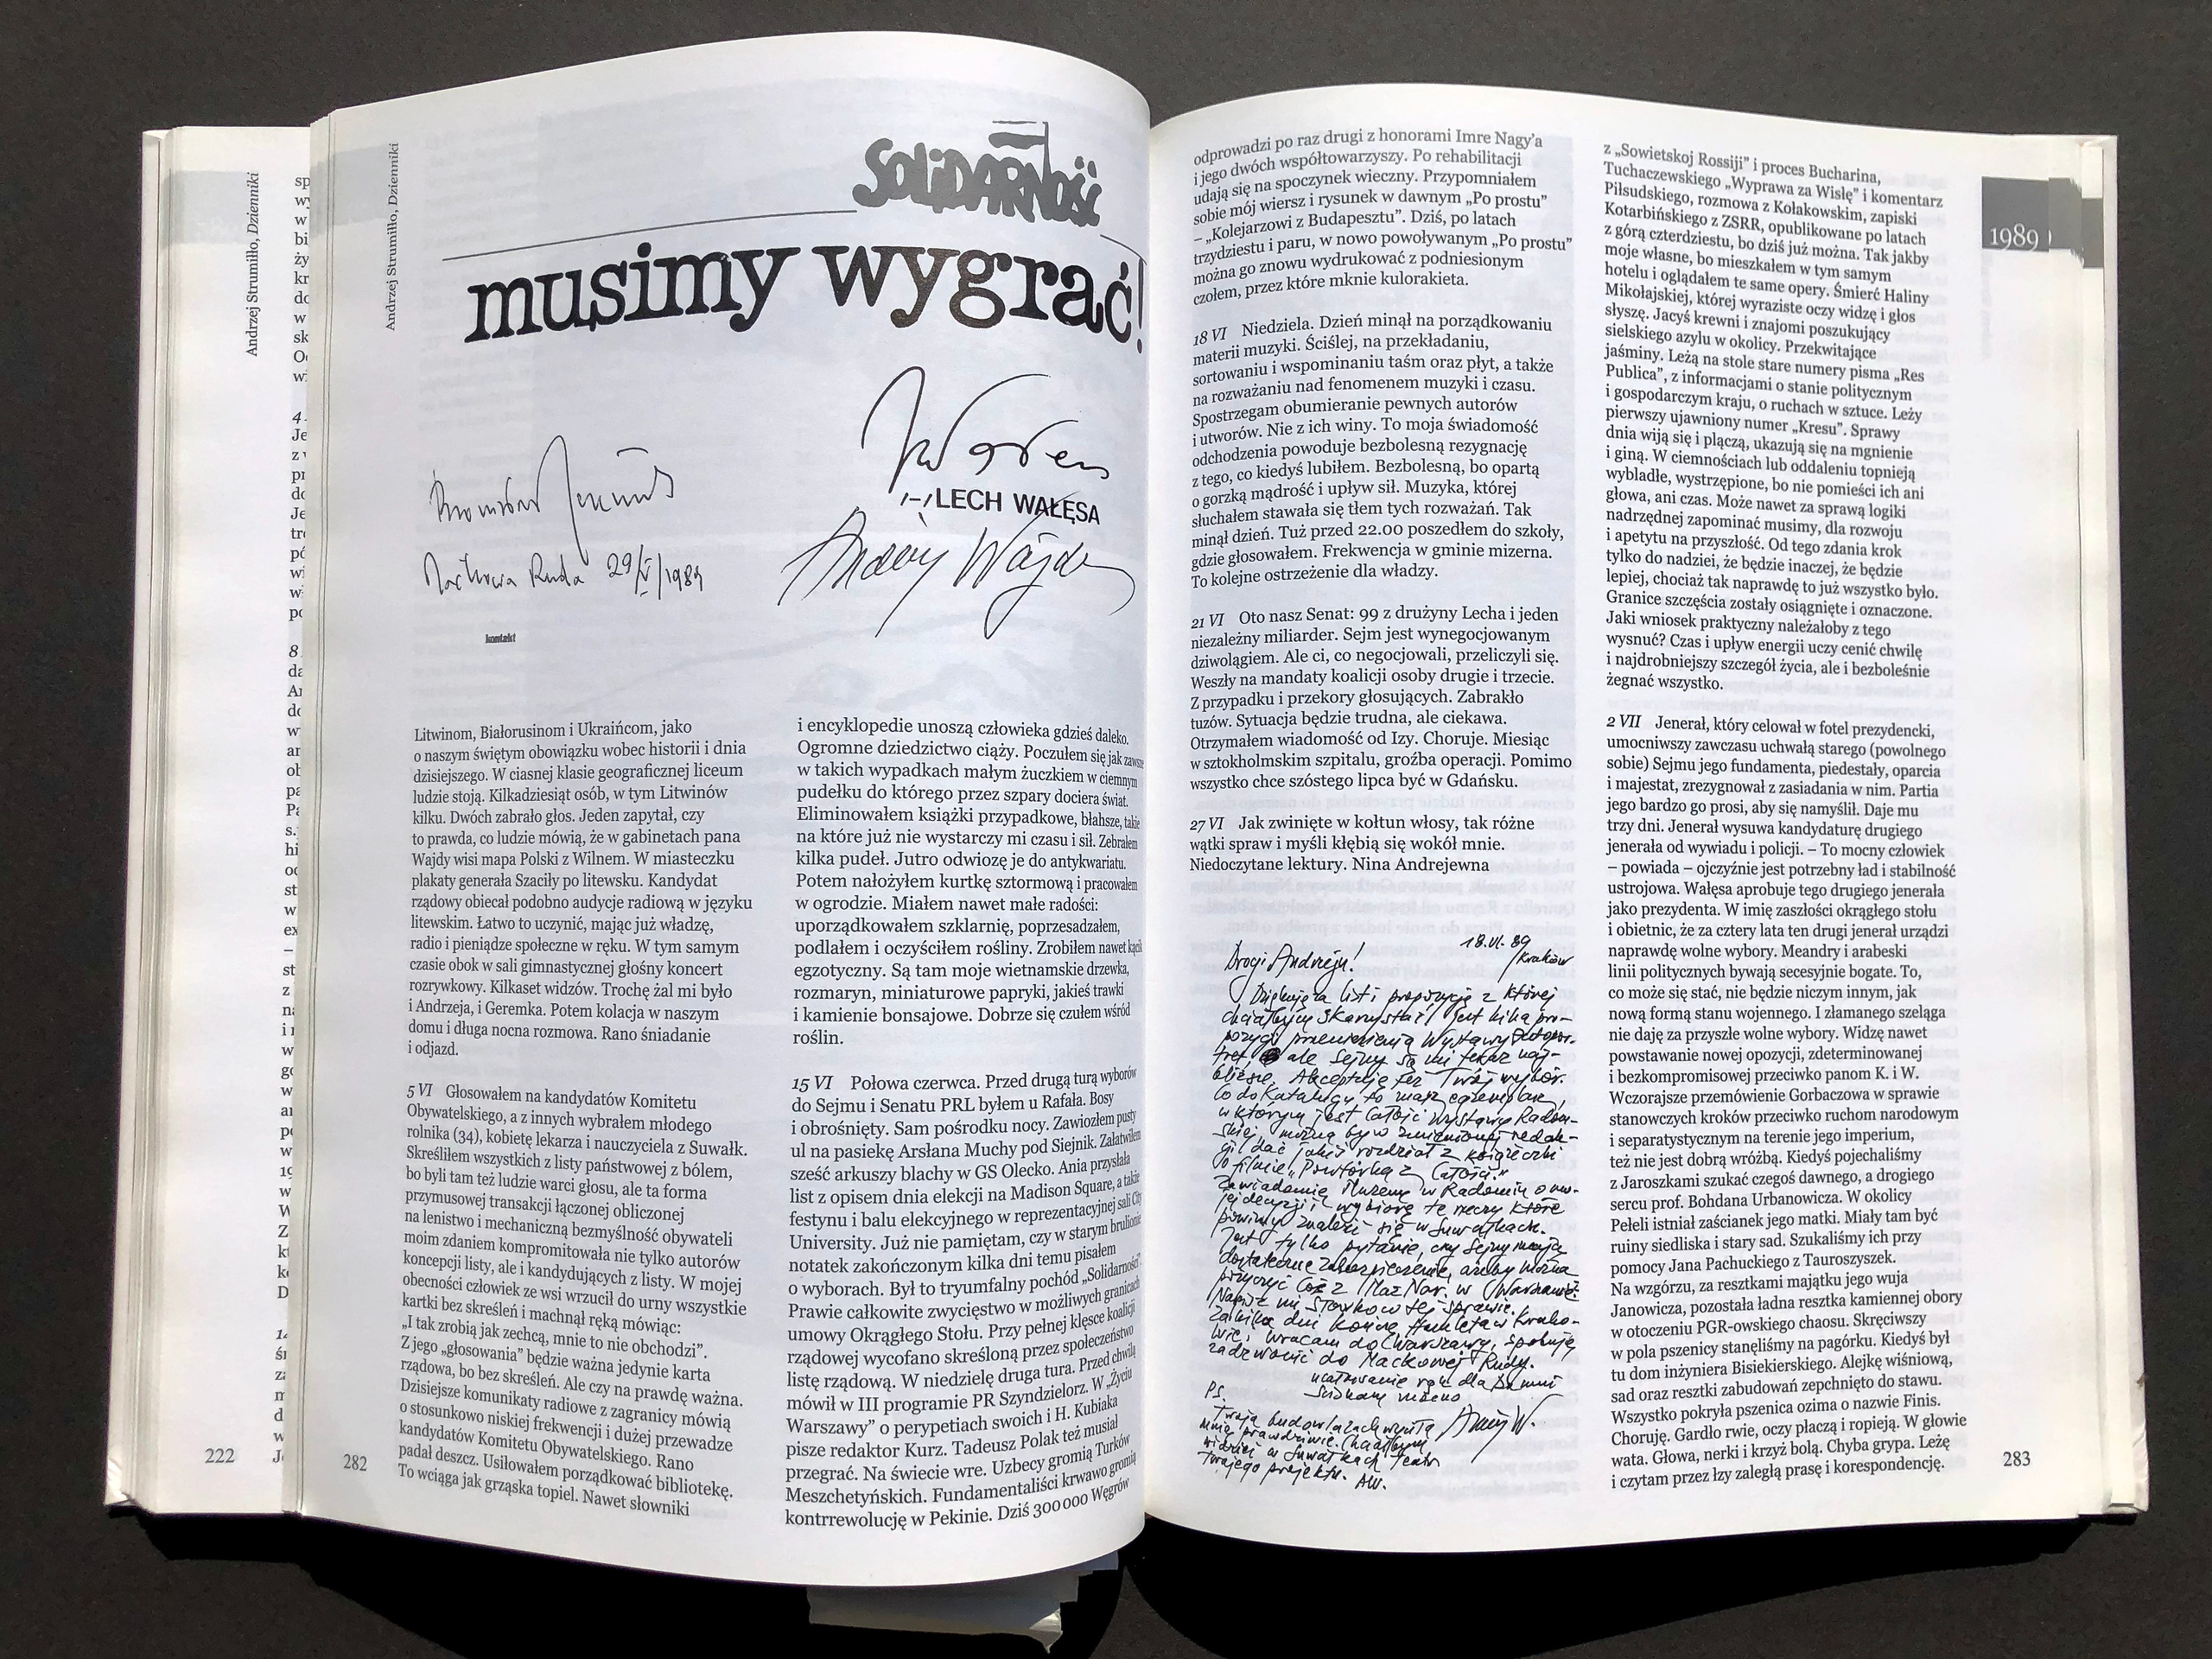 Andrzej Strumiłło, Dzienniki
222
Andrzej Strumiłło, Dzienniki
SOLIDARNOŚĆ
musimy wygrać!
LECH WAŁĘSA
Andrzej Wajda
Maćkowa Ruda 29/V/1989
kontakt
Litwinom, Białorusinom i Ukraińcom, jako
o naszym świętym obowiązku wobec historii i dnia
dzisiejszego. W ciasnej klasie geograficznej liceum
ludzie stoją. Kilkadziesiąt osób, w tym Litwinów
kilku. Dwóch zabrało głos. Jeden zapytał, czy
to prawda, co ludzie mówią, że w gabinetach pana
Wajdy wisi mapa Polski z Wilnem. W miasteczku
plakaty generała Szaciły po litewsku. Kandydat
rządowy obiecał podobno audycje radiową w języku
litewskim. Łatwo to uczynić, mając już władzę,
radio i pieniądze społeczne w ręku. W tym samym
czasie obok w sali gimnastycznej głośny koncert
rozrywkowy. Kilkaset widzów. Trochę żal mi było
i Andrzeja, i Geremka. Potem kolacja w naszym
domu i długa nocna rozmowa. Rano śniadanie
i odjazd.
5 VI Głosowałem na kandydatów Komitetu
Obywatelskiego, a z innych wybrałem młodego
rolnika (34), kobietę lekarza i nauczyciela z Suwałk.
Skreśliłem wszystkich z listy państwowej z bólem,
bo byli tam też ludzie warci głosu, ale ta forma
przymusowej transakcji łączonej obliczonej
na lenistwo i mechaniczną bezmyślność obywateli
moim zdaniem kompromitowała nie tylko autorów
koncepcji listy, ale i kandydujących z listy. W mojej
obecności człowiek ze wsi wrzucił do urny wszystkie
kartki bez skreśleń i machnął ręką mówiąc:
„I tak zrobią jak zechcą, mnie to nie obchodzi”.
Z jego „głosowania” będzie ważna jedynie karta
rządowa, bo bez skreśleń. Ale czy na prawdę ważna.
Dzisiejsze komunikaty radiowe z zagranicy mówią
o stosunkowo niskiej frekwencji i dużej przewadze
kandydatów Komitetu Obywatelskiego. Rano
padał deszcz. Usiłowałem porządkować bibliotekę.
To wciąga jak grząska topiel. Nawet słowniki
282
i encyklopedie unoszą człowieka gdzieś daleko.
Ogromne dziedzictwo ciąży. Poczułem się jak zawsze
w takich wypadkach małym żuczkiem w ciemnym
pudełku do którego przez szpary dociera świat.
Eliminowałem książki przypadkowe, błahsze, takie
na które już nie wystarczy mi czasu i sił. Zebrałem
kilka pudeł. Jutro odwiozę je do antykwariatu.
Potem nałożyłem kurtkę sztormową i pracowałem
w ogrodzie. Miałem nawet małe radości:
uporządkowałem szklarnię, poprzesadzałem,
podlałem i oczyściłem rośliny. Zrobiłem nawet kącik
egzotyczny. Są tam moje wietnamskie drzewka,
rozmaryn, miniaturowe papryki, jakieś trawki
i kamienie bonsajowe. Dobrze się czułem wśród
roślin.
15 VI Połowa czerwca. Przed drugą turą wyborów
do Sejmu i Senatu PRL byłem u Rafała. Bosy
i obrośnięty. Sam pośrodku nocy. Zawiozłem pusty
ul na pasiekę Arsłana Muchy pod Siejnik. Załatwiłem
sześć arkuszy blachy w GS Olecko. Ania przysłała
list z opisem dnia elekcji na Madison Square, a także
festynu i balu elekcyjnego w reprezentacyjnej sali City
University. Już nie pamiętam, czy w starym brulionie
notatek zakończonym kilka dni temu pisałem
o wyborach. Był to tryumfalny pochód „Solidarności”.
Prawie całkowite zwycięstwo w możliwych granicach
umowy Okrągłego Stołu. Przy pełnej klęsce koalicji
rządowej wycofano skreśloną przez społeczeństwo
listę rządową. W niedzielę druga tura. Przed chwilą
mówił w III programie PR Szyndzielorz. W „Życiu
Warszawy” o perypetiach swoich i H. Kubiaka
pisze redaktor Kurz. Tadeusz Polak też musiał
przegrać. Na świecie wre. Uzbecy gromią Turków
Meszchetyńskich. Fundamentaliści krwawo gromią
kontrrewolucję w Pekinie. Dziś 300 000 Węgrów
odprowadzi po raz drugi z honorami Imre Nagy’a
i jego dwóch współtowarzyszy. Po rehabilitacji
udają się na spoczynek wieczny. Przypomniałem
sobie mój wiersz i rysunek w dawnym „Po prostu”
– „Kolejarzowi z Budapesztu”. Dziś, po latach
trzydziestu i paru, w nowo powoływanym „Po prostu”
można go znowu wydrukować z podniesionym
czołem, przez które mknie kulorakieta.
18 VI Niedziela. Dzień minął na porządkowaniu
materii muzyki. Ściślej, na przekładaniu,
sortowaniu i wspominaniu taśm oraz płyt, a także
na rozważaniu nad fenomenem muzyki i czasu.
Spostrzegam obumieranie pewnych autorów
i utworów. Nie z ich winy. To moja świadomość
odchodzenia powoduje bezbolesną rezygnację
z tego, co kiedyś lubiłem. Bezbolesną, bo opartą
o gorzką mądrość i upływ sił. Muzyka, której
słuchałem stawała się tłem tych rozważań. Tak
minął dzień. Tuż przed 22.00 poszedłem do szkoły,
gdzie głosowałem. Frekwencja w gminie mizerna.
To kolejne ostrzeżenie dla władzy.
21 VI Oto nasz Senat: 99 z drużyny Lecha i jeden
niezależny miliarder. Sejm jest wynegocjowanym
dziwolągiem. Ale ci, co negocjowali, przeliczyli się.
Weszły na mandaty koalicji osoby drugie i trzecie.
Z przypadku i przekory głosujących. Zabrakło
tuzów. Sytuacja będzie trudna, ale ciekawa.
Otrzymałem wiadomość od Izy. Choruje. Miesiąc
w sztokholmskim szpitalu, groźba operacji. Pomimo
wszystko chce szóstego lipca być w Gdańsku.
27 VI Jak zwinięte w kołtun włosy, tak różne
wątki spraw i myśli kłębią się wokół mnie.
Niedoczytane lektury. Nina Andrejewna
18.VI.89
Kraków
Drogi Andrzeju!
Dziękuję za list i propozycję z której
chciałbym skorzystać! Jest kilka pro-
pozycji przeniesienia Wystawy Autopor-
tret ale Sejny są mi teraz naj-
bliższe. Akceptuję też Twój wybór.
Co do Katalogu, to masz egzemplarz,
w którym jest całość wystawy Radom-
skiej, można by w zmienionej redak-
cji dać jakiś rozdział z książeczki
o filmie „Powtórka z Całości.”
Zawiadomię Muzeum w Radomiu o mo-
jej decyzji i wybiorę te rzeczy które
powinny znaleźć się w Suwałkach.
Jest tylko pytanie, czy Sejny mają
dostateczne zabezpieczenie, ażeby można
pożyczyć coś z Muz Nar. w Warszawie
Napisz mi słówko w tej sprawie.
Za kilka dni kończę Hamleta w Krako-
wie, i wracam do Warszawy, spróbuję
zadzwonić do Maćkowej Rudy.
ucałowanie rąk dla Pani
ściskam mocno
Andrzej W.
PS.
Twoja budowla zachwyciła
mnie prawdziwie. Chciałbym
widzieć w Suwałkach Teatr
Twojego projektu. AW.
z „Sowietskoj Rossiji” i proces Bucharina,
Tuchaczewskiego „Wyprawa za Wisłę” i komentarz
Piłsudskiego, rozmowa z Kołakowskim, zapiski
Kotarbińskiego z ZSRR, opublikowane po latach
z górą czterdziestu, bo dziś już można. Tak jakby
moje własne, bo mieszkałem w tym samym
hotelu i oglądałem te same opery. Śmierć Haliny
Mikołajskiej, której wyraziste oczy widzę i głos
słyszę. Jacyś krewni i znajomi poszukujący
sielskiego azylu w okolicy. Przekwitające
jaśminy. Leżą na stole stare numery pisma „Res
Publica”, z informacjami o stanie politycznym
i gospodarczym kraju, o ruchach w sztuce. Leży
pierwszy ujawniony numer „Kresu”. Sprawy
dnia wiją się i plączą, ukazują się na mgnienie
i giną. W ciemnościach lub oddaleniu topnieją
wybladłe, wystrzępione, bo nie pomieści ich ani
głowa, ani czas. Może nawet za sprawą logiki
nadrzędnej zapominać musimy, dla rozwoju
i apetytu na przyszłość. Od tego zdania krok
tylko do nadziei, że będzie inaczej, że będzie
lepiej, chociaż tak naprawdę to już wszystko było.
Granice szczęścia zostały osiągnięte i oznaczone.
Jaki wniosek praktyczny należałoby z tego
wysnuć? Czas i upływ energii uczy cenić chwilę
i najdrobniejszy szczegół życia, ale i bezboleśnie
żegnać wszystko.
2 VII Jenerał, który celował w fotel prezydencki,
umocniwszy zawczasu uchwałą starego (powolnego
sobie) Sejmu jego fundamenta, piedestały, oparcia
i majestat, zrezygnował z zasiadania w nim. Partia
jego bardzo go prosi, aby się namyślił. Daje mu
trzy dni. Jenerał wysuwa kandydaturę drugiego
jenerała od wywiadu i policji. – To mocny człowiek
– powiada – ojczyźnie jest potrzebny ład i stabilność
ustrojowa. Wałęsa aprobuje tego drugiego jenerała
jako prezydenta. W imię zaszłości okrągłego stołu
i obietnic, że za cztery lata ten drugi jenerał urządzi
naprawdę wolne wybory. Meandry i arabeski
linii politycznych bywają secesyjnie bogate. To,
co może się stać, nie będzie niczym innym, jak
nową formą stanu wojennego. I złamanego szeląga
nie daję za przyszłe wolne wybory. Widzę nawet
powstawanie nowej opozycji, zdeterminowanej
i bezkompromisowej przeciwko panom K. i W.
Wczorajsze przemówienie Gorbaczowa w sprawie
stanowczych kroków przeciwko ruchom narodowym
i separatystycznym na terenie jego imperium,
też nie jest dobrą wróżbą. Kiedyś pojechaliśmy
z Jaroszkami szukać czegoś dawnego, a drogiego
sercu prof. Bohdana Urbanowicza. W okolicy
Pełeli istniał zaścianek jego matki. Miały tam być
ruiny siedliska i stary sad. Szukaliśmy ich przy
pomocy Jana Pachuckiego z Tauroszyszek.
Na wzgórzu, za resztkami majątku jego wuja
Janowicza, pozostała ładna resztka kamiennej obory
w otoczeniu PGR-owskiego chaosu. Skręciwszy
w pola pszenicy stanęliśmy na pagórku. Kiedyś był
tu dom inżyniera Bisiekierskiego. Alejkę wiśniową,
sad oraz resztki zabudowań zepchnięto do stawu.
Wszystko pokryła pszenica ozima o nazwie Finis.
Choruję. Gardło rwie, oczy płaczą i ropieją. W głowie
wata. Głowa, nerki i krzyż bolą. Chyba grypa. Leżę
i czytam przez łzy zaległą prasę i korespondencję.
1989
283